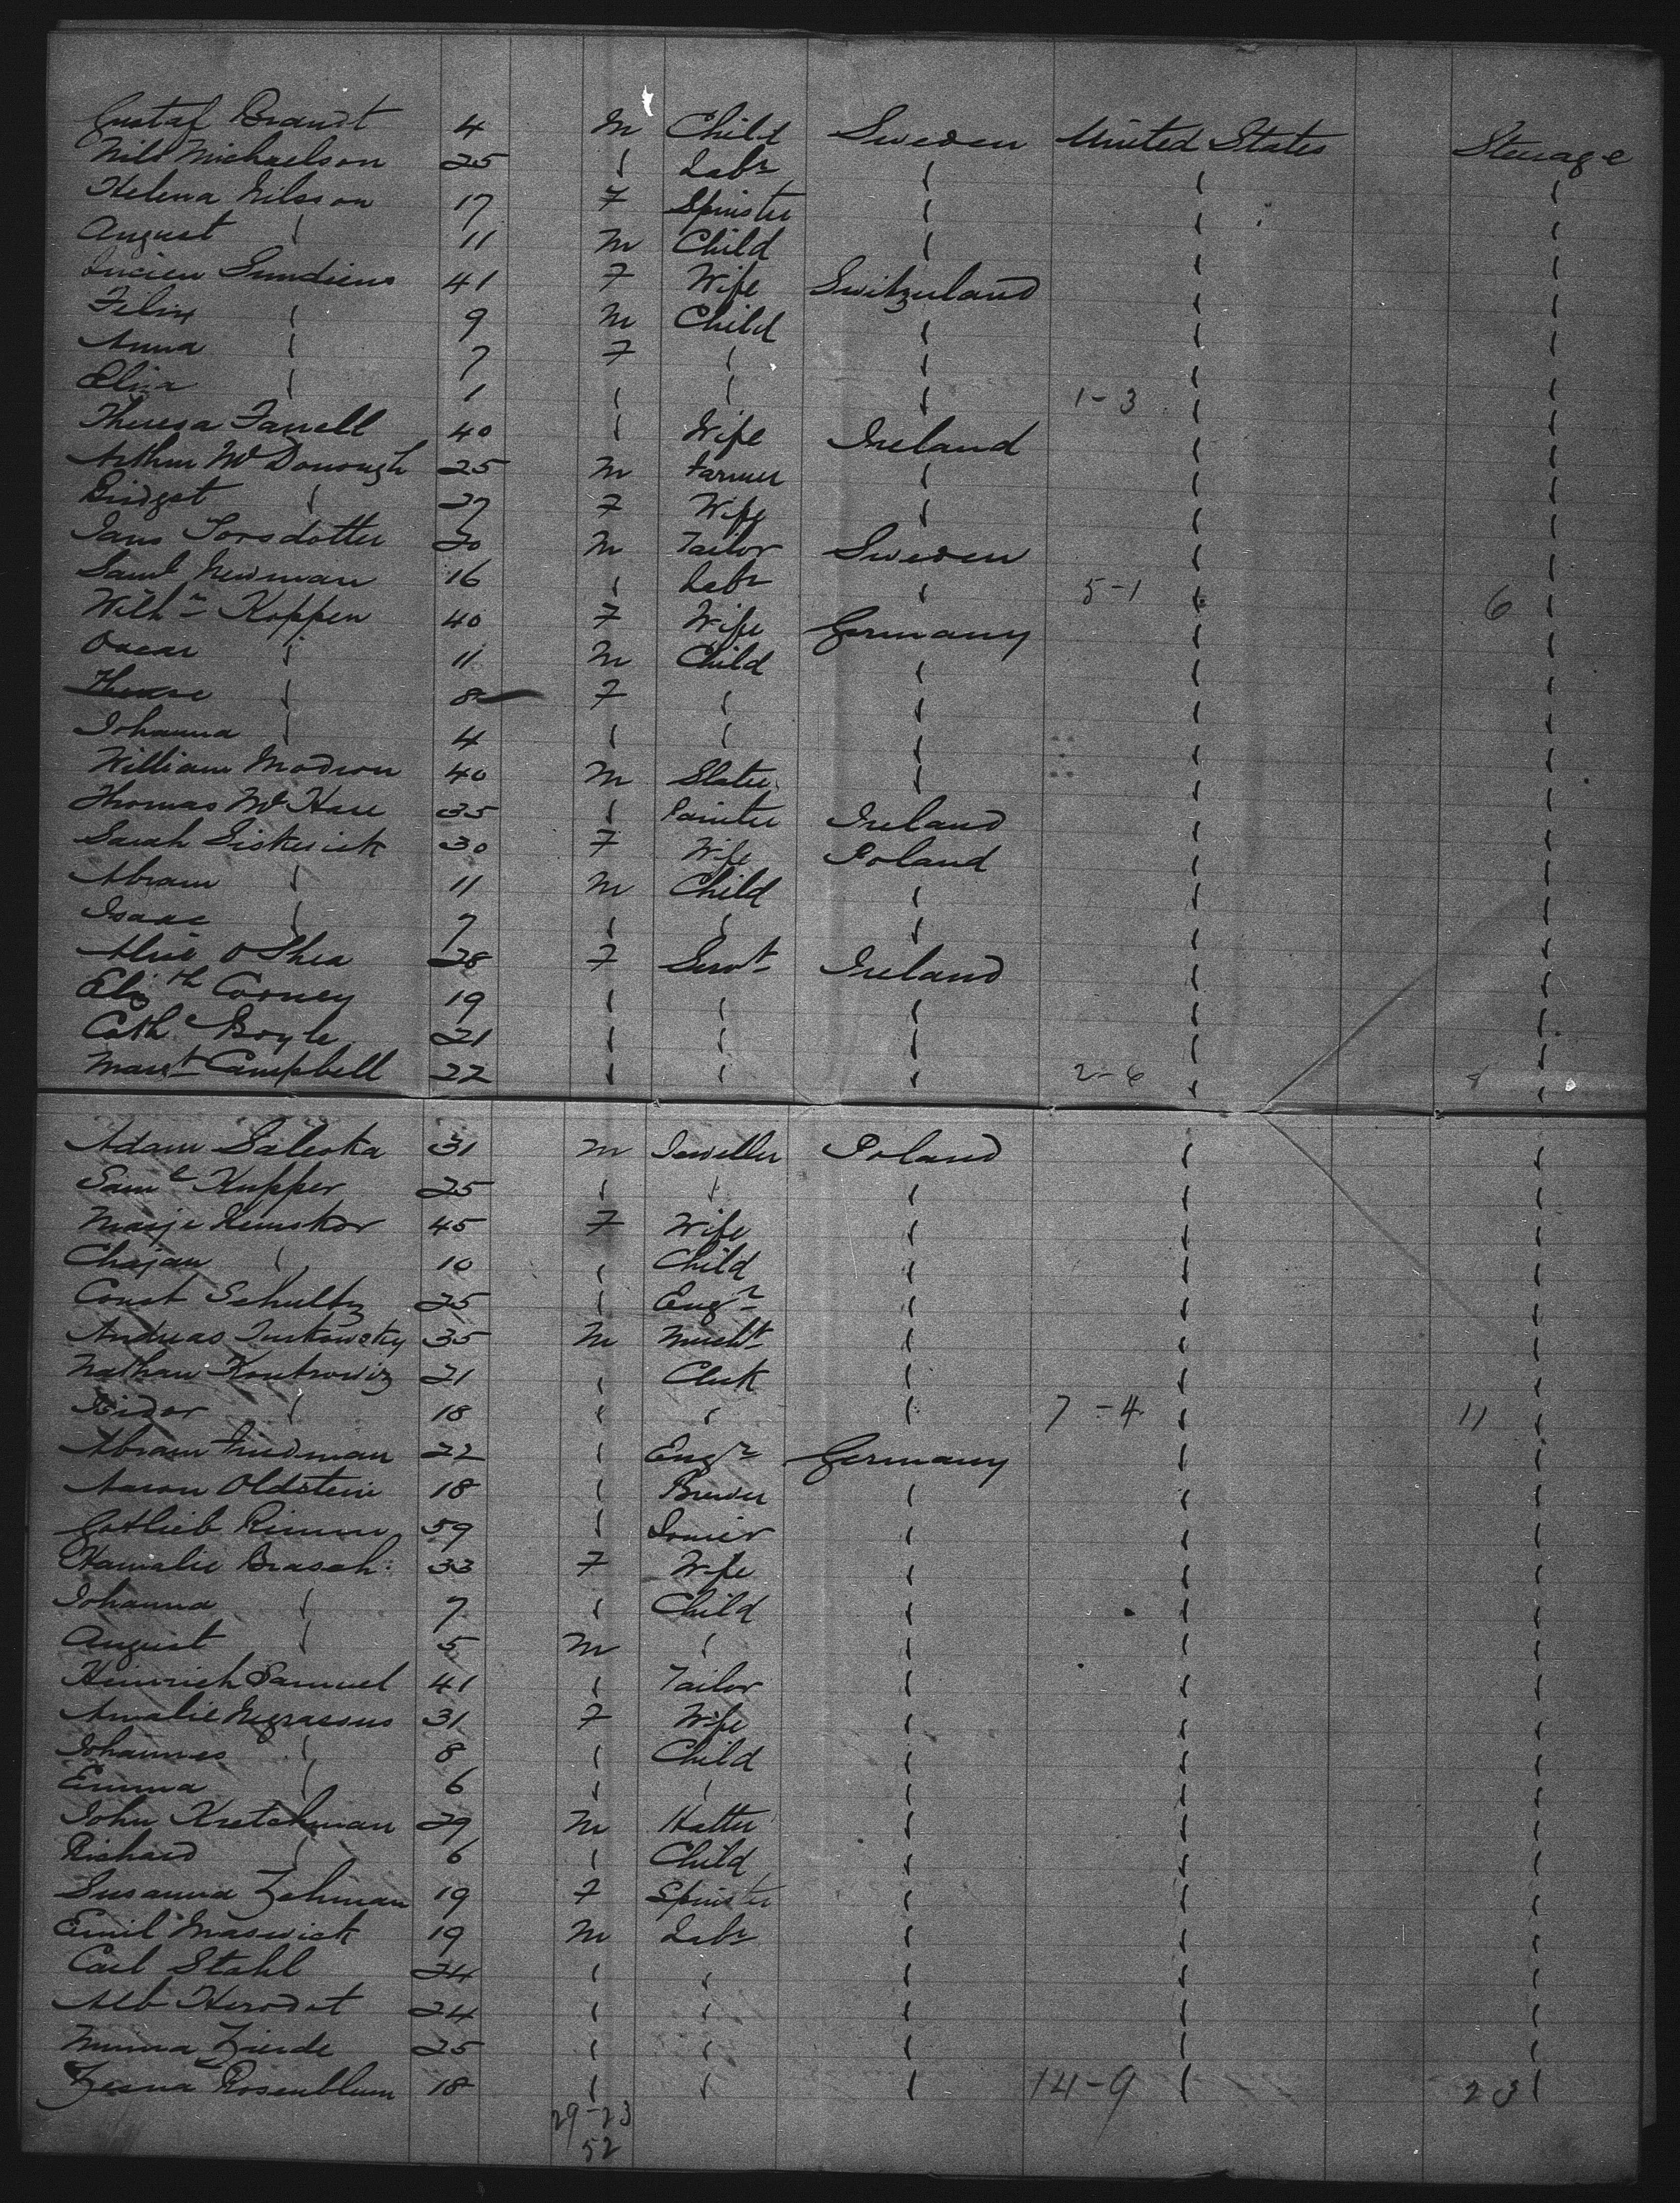 Gustaf Brandt 4 M Child Sweden United States Steerage
Nils Michaelson 25 " Labr " " "
Helena Nilsson 17 F Spinster " " "
August " 11 M Child " " "
Lucien Sundiens 41 F Wife Switzerland " "
Felix " 9 M Child " " "
Anna " 7 F " " " "
Elisa " 1 " " " 1-3 " "
Theresa Farrell 40 " Wife Ireland " "
Arthur McDonough 25 M Farmer " " "
Bridget " 27 F Wife " " "
Jans Torsdotter 20 M Tailor Sweden " "
Saml Newman 16 " Labr " 5-1 " 6 "
Wilhm Koppen 40 F Wife Germany " "
Oscar " 11 M Child " " "
Therese " 8 F " " " "
Johanna " 4 " " " " "
William Modron 40 M Slater " " "
Thomas McHare 35 " Painter Ireland " "
Sarah Siskerick 30 F Wife Poland " "
Abram " 11 M Child " " "
Isaac " 7 " " " " "
Alice O Shea 28 F Servt Ireland " "
Elizth Corney 19 " " " " "
Cathe Boyle 21 " " " " "
Margt Campbell 22 " " " 2-6 " 8 "
Adam Saleska 31 M Jeweller Poland " "
Saml Kupper 25 " " " " "
Marje Remskor 45 F Wife " " "
Chajan " 10 " Child " " "
Const Schultz 25 " Engr " " "
Andreas Turkowsky 35 M Mercht " " "
Nathan Kontrowiz 21 " Clerk " " "
Isidor " 18 " " " 7-4 " 11 "
Abram Friedman 22 " Engr Germany " "
Aaron Oldstein 18 " Brewer " " "
Gottlieb Rimm 59 " Joiner " " "
Hamalie Brasch 33 F Wife " " "
Johanna " 7 " Child " " "
August " 5 M " " " "
Heinrich Samuel 41 " Tailor " " "
Amalie Negrassus 31 F Wife " " "
Johannes " 8 " Child " " "
Emma " 6 " " " " "
John Kretchman 29 M Hatter " " "
Richard " 6 " Child " " "
Susanna Zehman 19 F Spinster " " "
Emil Maswick 19 M Labr " " "
Carl Stahl 24 " " " " "
Alb Herodat 24 " " " " "
Minna Zierde 25 " " " " "
Zesna Rosenblum 18 " " " 14-9 " 23 "
29-23
52